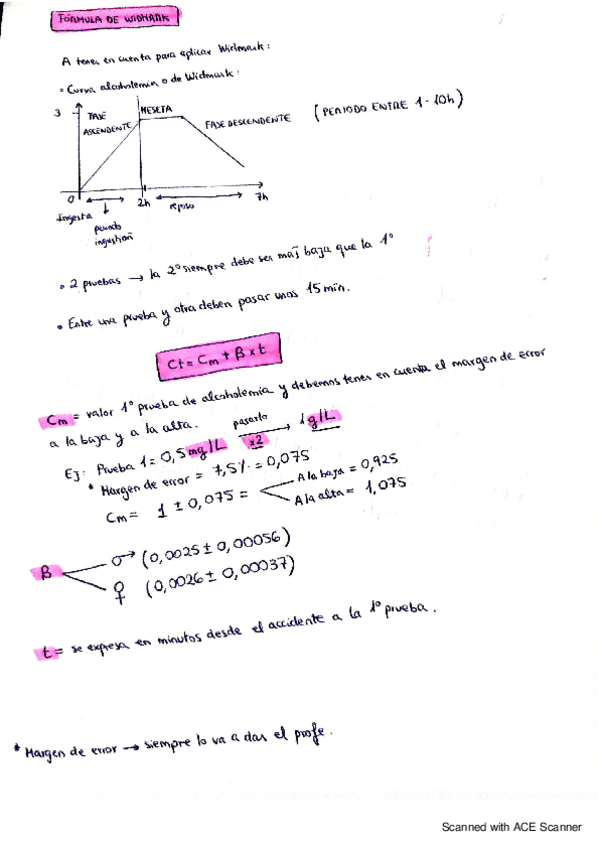 FÓRMULA DE WIDMARK
A tener en cuenta para aplicar Widmark:
• Curva alcoholemia o de Widmark:
3
FASE ASCENDENTE
MESETA
FASE DESCENDENTE
(PERIODO ENTRE 1-10h)
0
2h
7h
Ingesta
periodo ingestión
reposo
• 2 pruebas → la 2º siempre debe ser más baja que la 1º
• Entre una prueba y otra deben pasar unos 15 min.
Ct = Cm + B x t
Cm = valor 1º prueba de alcoholemia y debemos tener en cuenta el margen de error
a la baja y a la alta.
Ej: Prueba 1 = 0,5 mg/L pasarlo x2 → 1 g/L
* Margen de error = 7,5% = 0,075
Cm = 1 ± 0,075 =
A la baja = 0,925
A la alta = 1,075
B
♂ (0,0025 ± 0,00056)
♀ (0,0026 ± 0,00037)
t = se expresa en minutos desde el accidente a la 1º prueba.
* Margen de error → siempre lo va a dar el profe.
Scanned with ACE Scanner